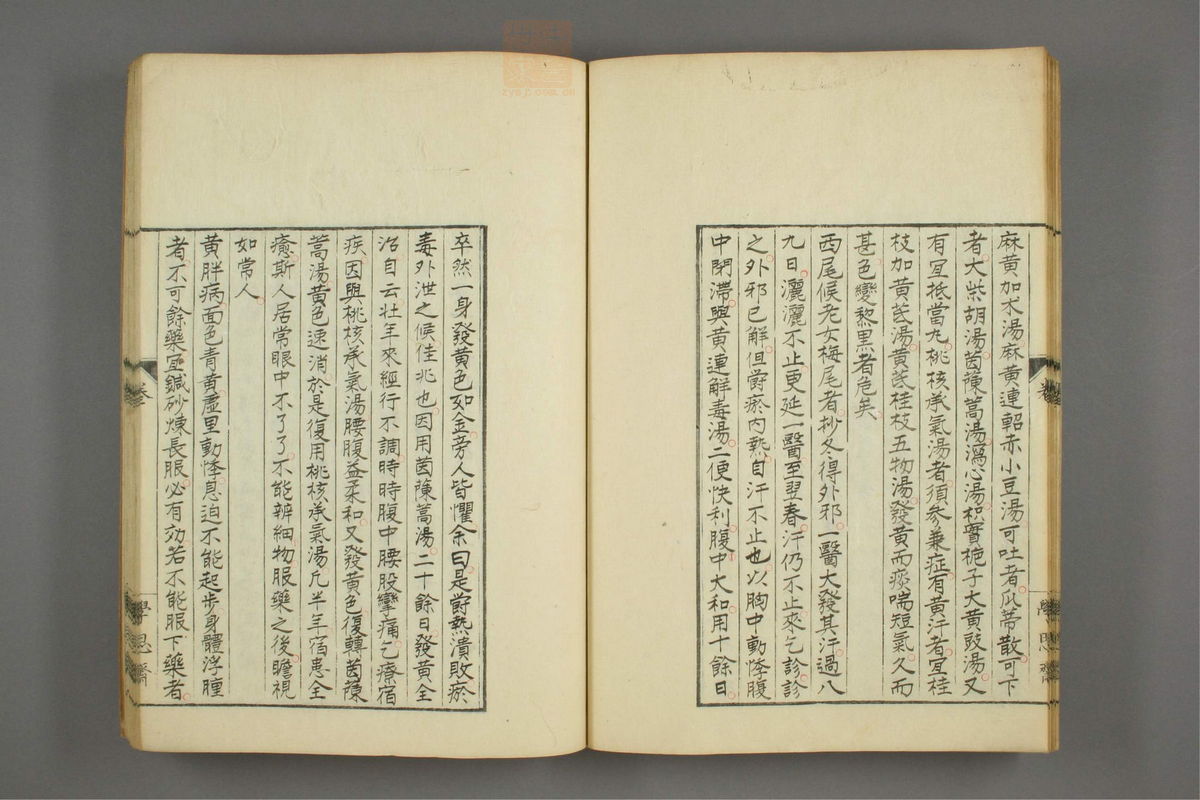 麻黄加朮湯麻黄連軺赤小豆湯可吐者瓜蒂散可下
者大柴胡湯茵蔯蒿湯瀉心湯枳實梔子大黄豉湯又
有宜抵當丸桃核承氣湯者須參兼症有黄汗者宜桂
枝加黄芪湯黄芪桂枝五物湯發黄而痰喘短氣久而
甚色變黎黒者危矣
西尾候老女梅尾者抄冬得外邪一醫大發其汗過八
九日灑灑不止更延一醫至翌春汗仍不止來乞診診
之外邪已解但欝瘀内熱自汗不止也以胸中動悸腹
中閉滞與黄連解毒湯二便快利腹中大和用十餘日
卒然一身發黄色如金旁人皆懼余曰是欝熱潰敗瘀
毒外泄之候佳兆也因用茵蔯蒿湯二十餘日發黄全
治自云壮年來經行不調時時腹中腰股攣痛乞療宿
疾因與桃核承氣湯腰腹益柔和又發黄色復轉茵蔯
蒿湯黄色速消於是復用桃核承氣湯凡半年宿患全
癒斯人居常眼中不了了不能辨細物服藥之後瞻視
如常人
黄胖病面色青黄虚里動悸息迫不能起歩身體浮腫
者不可餘藥宜鍼砂煉長服必有効若不能服下藥者
卷
學思齋